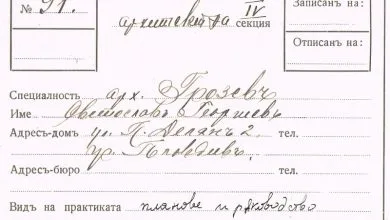 № 91.
архитектура IV секция
Записанъ на:
Отписанъ на:
Специалность арх. Грозевъ
Име Светославъ Георгиевъ
Адресъ-домъ ул. П. Делянъ 2 тел.
гр. Пловдивъ.
Адресъ-бюро тел.
Видъ на практиката планове и рѫководство